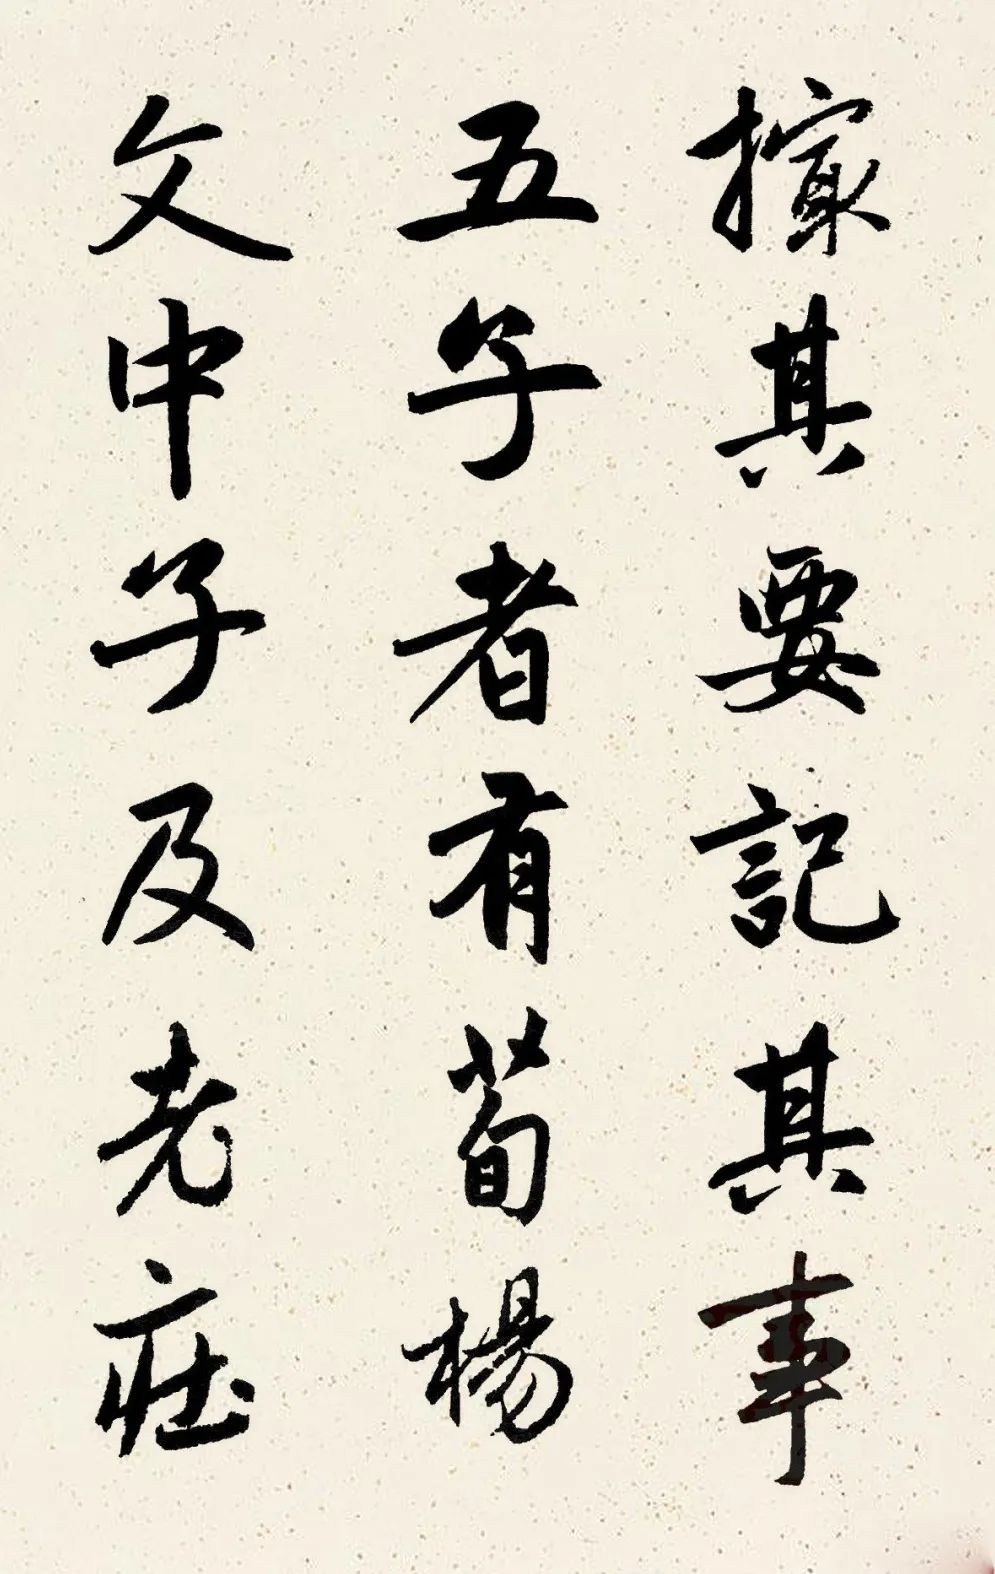 撮其要記其事
五子者有荀楊
文中子及老庄